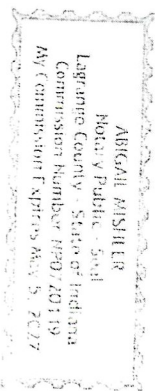 ABIGAIL MISHLER
Notary Public - Seal
Lagrange County - State of Indiana
Commission Number NP0720119
My Commission Expires May 5, 2027